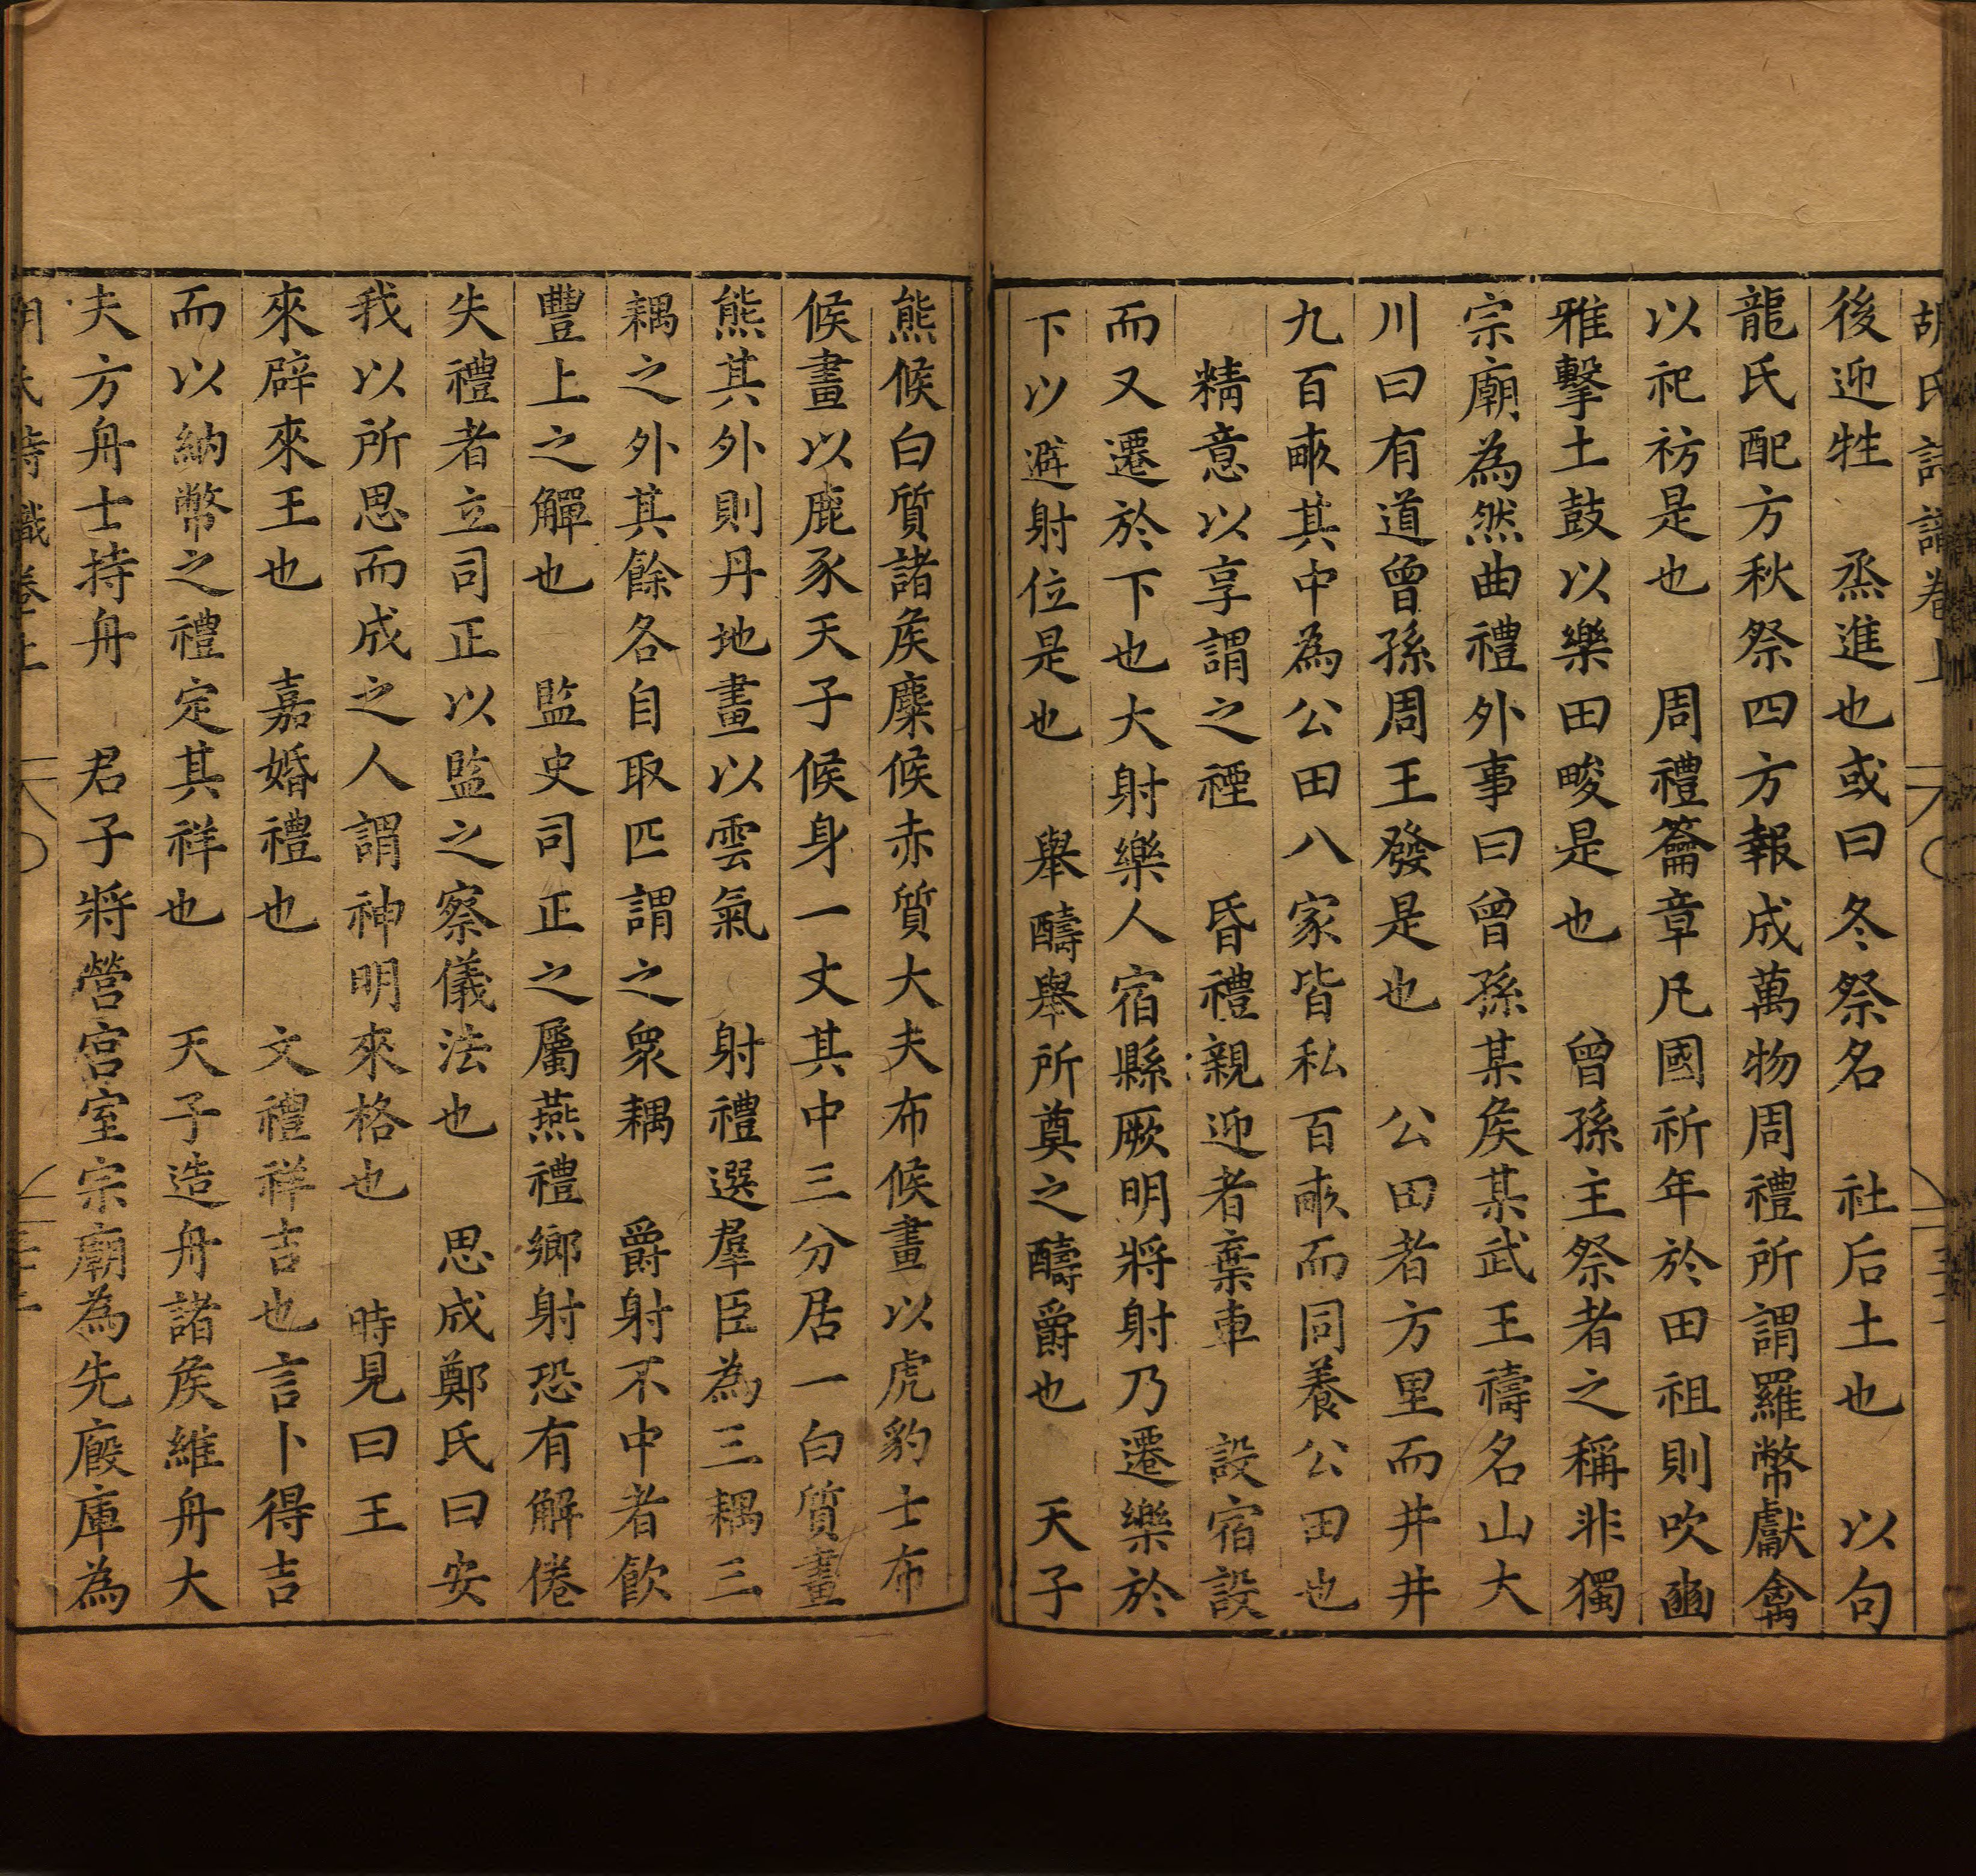 胡氏詩識卷上
後迎牲　烝進也或曰冬祭名　社后土也　以句
龍氏配方秋祭四方報成萬物周禮所謂羅幣獻禽
以祀祊是也　周禮籥章凡國祈年於田祖則吹豳
雅擊土鼓以樂田畯是也　曾孫主祭者之稱非獨
宗廟為然曲禮外事曰曾孫某矦某武王禱名山大
川曰有道曾孫周王發是也　公田者方里而井井
九百畝其中為公田八家皆私百畝而同養公田也
　精意以享謂之禋　昏禮親迎者棄車　設宿設
而又遷於下也大射樂人宿縣厥明將射乃遷樂於
下以避射位是也　舉醻舉所奠之醻爵也　天子
熊候白質諸矦麋候赤質大夫布候畫以虎豹士布
候畫以鹿豕天子候身一丈其中三分居一白質畫
熊其外則丹地畫以雲氣　射禮選羣臣為三耦三
耦之外其餘各自取匹謂之眾耦　爵射不中者飲
豐上之觶也　監史司正之屬燕禮鄉射恐有解倦
失禮者立司正以監之察儀法也　思成鄭氏曰安
我以所思而成之人謂神明來格也　時見曰王
來辟來王也　嘉婚禮也　文禮祥吉也言卜得吉
而以納幣之禮定其祥也　天子造舟諸矦維舟大
夫方舟士持舟　君子將營宮室宗廟為先廄庫為